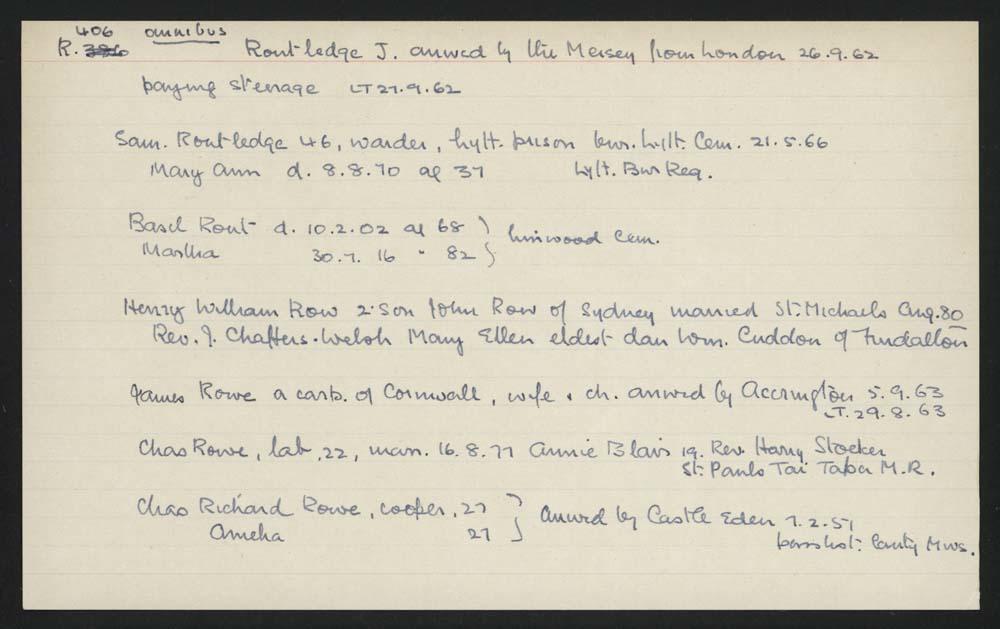 406 omnibus
R. 386 Routledge J. arrived by the Mersey from London 26.9.62
paying steerage LT 27.9.62
Sam. Routledge 46, warder, Lytt. prison bur. Lytt. Cem. 21.5.66
Mary Ann d. 8.8.70 ag 37 Lytt. Bur Reg.
Basil Rout d. 10.2.02 ag 68 } Linwood Cem.
Martha 30.7.16 " 82
Henry William Row 2. son John Row of Sydney married St. Michaels Aug. 80
Rev. J. Chaffers-Welsh Mary Ellen eldest dau Wm. Cuddon of Fendalton
James Rowe a carp. of Cornwall, wife & ch. arrived by Accrington 5.9.63
LT. 29.8.63
Chas Rowe, lab, 22, marr. 16.8.77 Annie Blair 19. Rev. Harry Stocker
St. Pauls Tai Tapu M.R.
Chas Richard Rowe, cooper, 27 } arrived by Castle Eden 7.2.51
Amelia 27
pass list. Canty Mus.